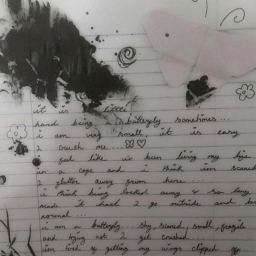 it is little
hard being a butterfly sometimes...
i am very small, it is easy
2 crush me.
i feel like iv been living my life
in a cage and i think im scared
2 flutter away from here.
i think being locked away 4 so long
made it hard 2 go outside and be
normal...
i am a butterfly... shy, scared, small, fragile
and trying not 2 get crushed...
im tired of getting my wings clipped